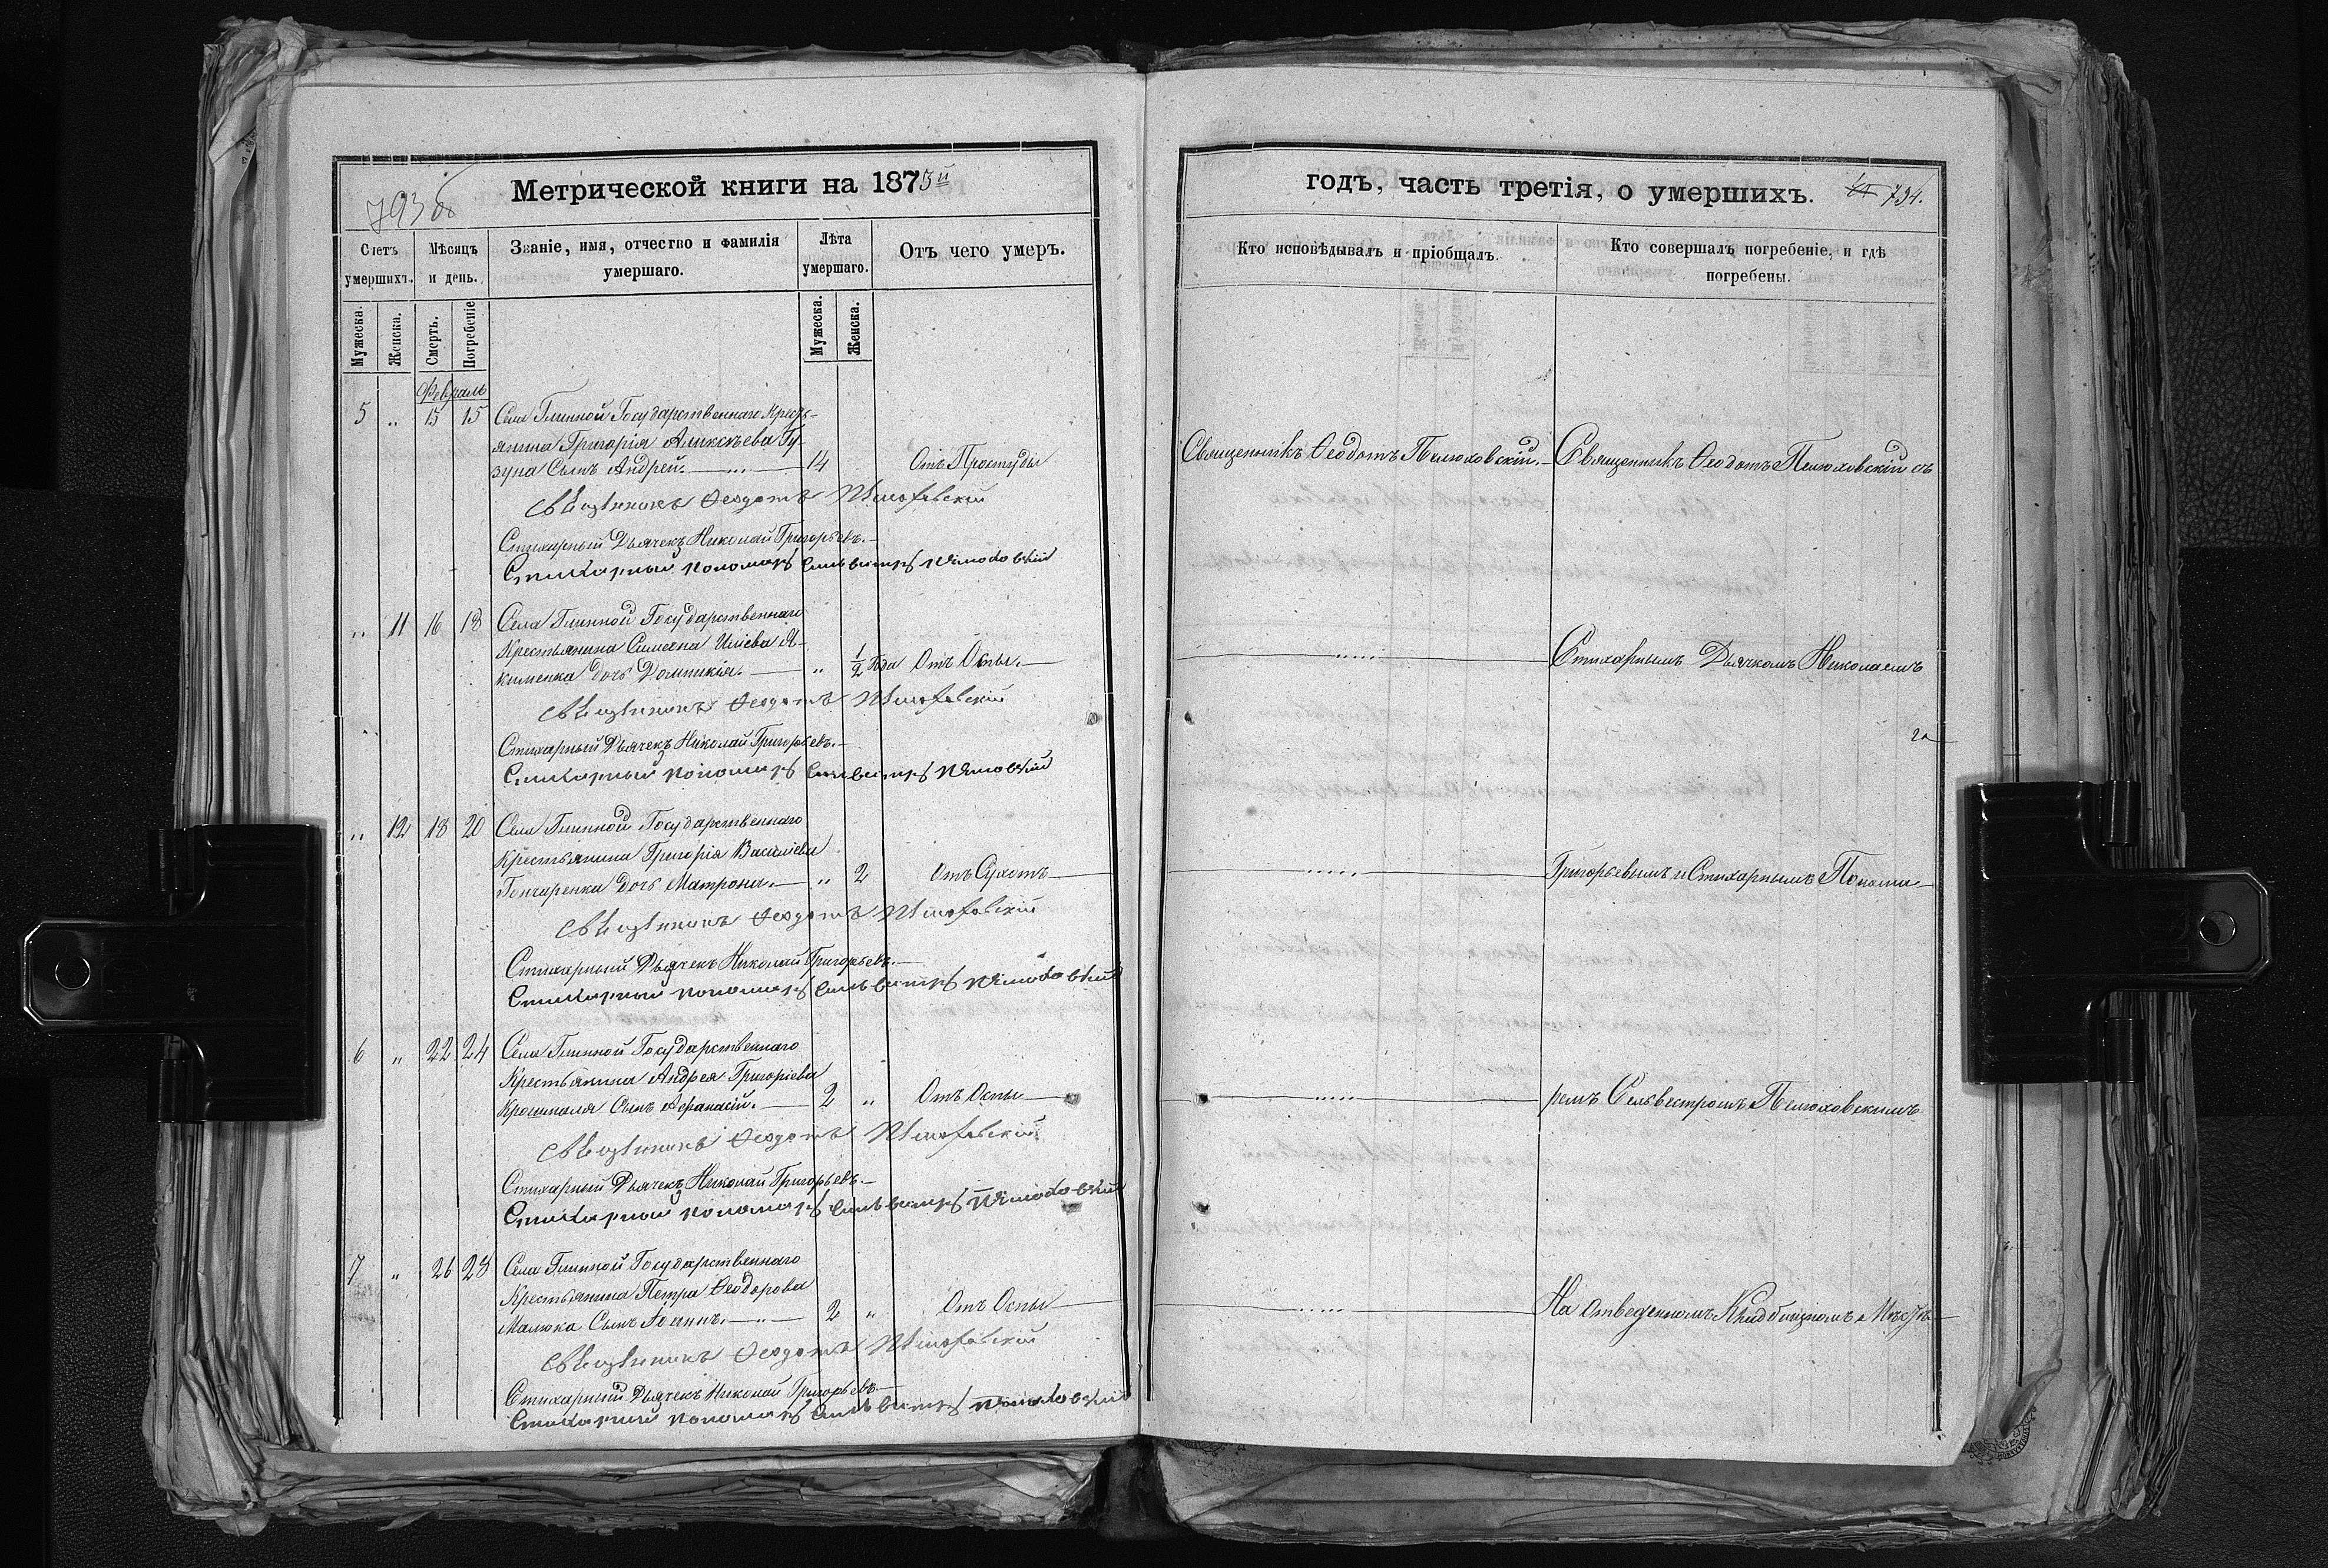 Метрической книги на 1873й
793 об
Счетъ умершихъ.
Мѣсяцъ и день.
Званіе, имя, отчество и фамилія умершаго.
Лѣта умершаго.
Отъ чего умеръ.
Мужеска.
Женска.
Смерть.
Погребеніе
Мужеска.
Женска.
Февраль
5 " 15 15 Села Глинной Государственнаго Кресть-
янина Григорія Алексѣева Гу-
зуна Сынъ Андрей. 14 Отъ Простуды
Священникъ Ѳеодотъ Пелюховскій
Стихарный Дьячекъ Николай Григорьевъ.
Стихарный пономарь Сильвестръ Пелюховскій
" 11 16 18 Села Глинной Государственнаго
Крестьянина Симеона Иліева А-
кименка дочь Домникія. " 1/2 Года Отъ Оспы.
Священникъ Ѳеодотъ Пелюховскій
Стихарный Дьячекъ Николай Григорьевъ.
Стихарный пономарь Сильвестръ Пелюховскій
" 12 18 20 Села Глинной Государственнаго
Крестьянина Григорія Василіева
Гончаренка дочь Матрона. " 2 Отъ Сухотъ
Священникъ Ѳеодотъ Пелюховскій
Стихарный Дьячекъ Николай Григорьевъ.
Стихарный пономарь Сильвестръ Пелюховскій
6 " 22 24 Села Глинной Государственнаго
Крестьянина Андрея Григоріева
Сынъ Афанасій. 2 " Отъ Оспы
Священникъ Ѳеодотъ Пелюховскій
Стихарный Дьячекъ Николай Григорьевъ.
Стихарный пономарь Сильвестръ Пелюховскій
7 " 26 28 Села Глинной Государственнаго
Крестьянина Петра Ѳеодорова
Малюка Сынъ Іоаннъ. 2 " Отъ Оспы
Священникъ Ѳеодотъ Пелюховскій
Стихарный Дьячекъ Николай Григорьевъ
Стихарный пономарь Сильвестръ Пелюховскій
годъ, часть третія, о умершихъ.
794.
Кто исповѣдывалъ и пріобщалъ.
Кто совершалъ погребеніе, и гдѣ погребены.
Священникъ Ѳеодотъ Пелюховскій.
Священникъ Ѳеодотъ Пелюховскій съ
Стихарнымъ Дьячкомъ Николаемъ
Григорьевымъ и Стихарнымъ Понома-
ремъ Сельвестромъ Пелюховскимъ
На отведенномъ Кладбищномъ Мѣстѣ